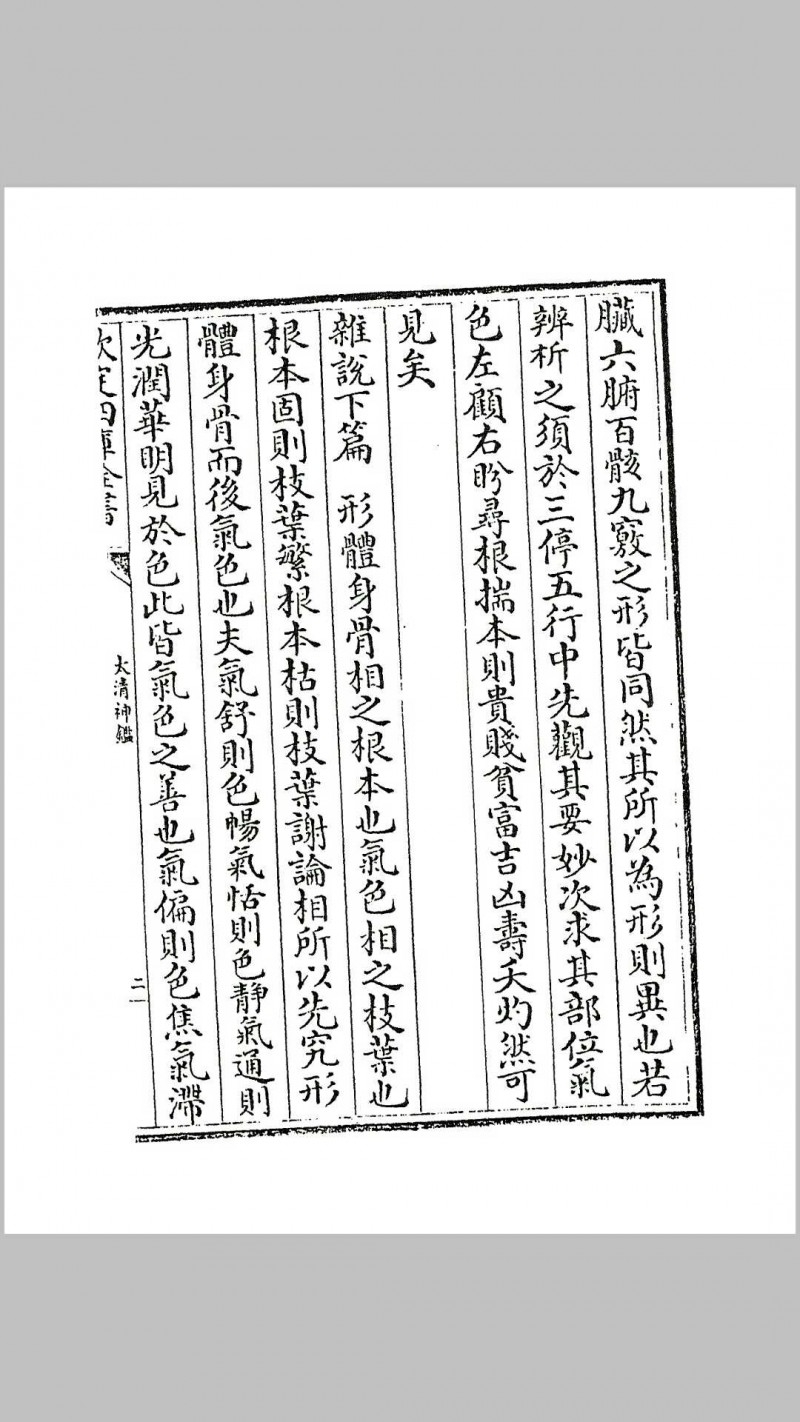 臟六腑百骸九竅之形皆同然其所以為形則異也若
辨析之須於三停五行中先觀其要妙次求其部位氣
色左顧右盼尋根揣本則貴賤貧富吉凶壽夭灼然可
見矣
雜説下篇　形體身骨相之根本也氣色相之枝葉也
根本固則枝葉繁根本枯則枝葉謝論相所以先究形
體身骨而後氣色也夫氣舒則色暢氣恬則色靜氣通則
光潤華明見於色此皆氣色之善也氣偏則色焦氣滯
欽定四庫全書
太清神鑑
二